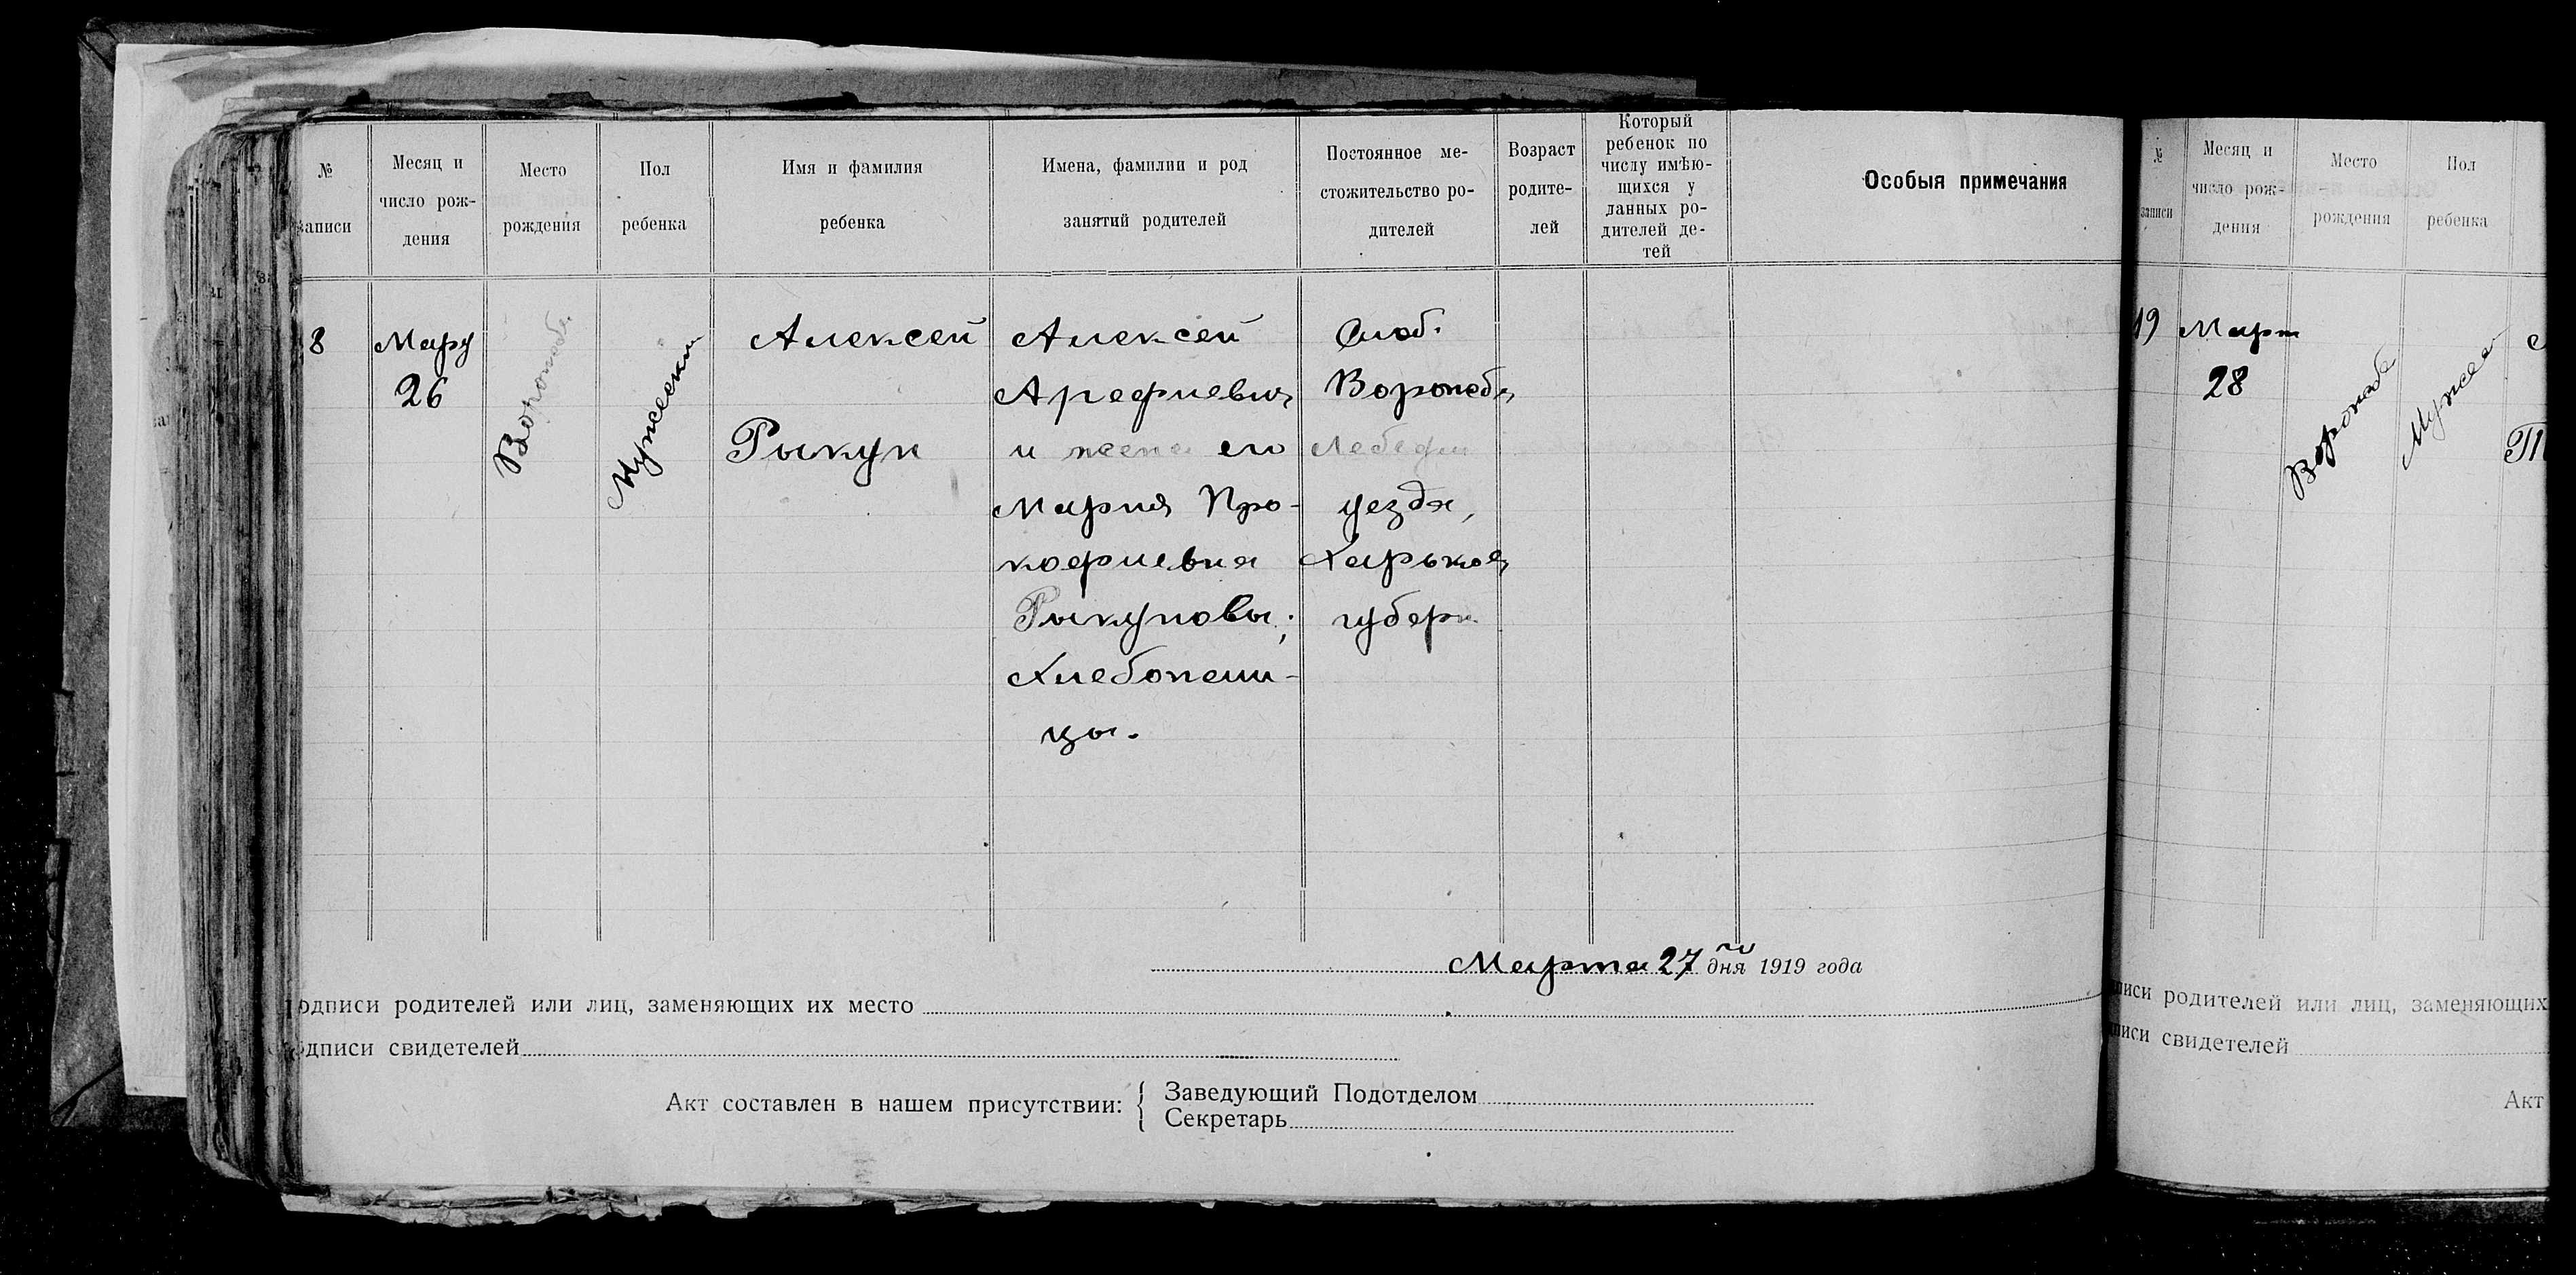 № записи
Месяц и число рождения
Место рождения
Пол ребенка
Имя и фамилия ребенка
Имена, фамилии и род занятий родителей
Постоянное местожительство родителей
Возраст родителей
Который ребенок по числу имѣющихся у данных родителей детей
Особыя примечания
8
Март
26
Ворожба
Мужеский
Алексей
Рыкун
Алексей
Арефиевич
и жена его
Мария Про-
кофиевна
Рыкуновы;
Хлебопаш-
цы.
Слоб.
Ворожба,
Лебедин
уезда,
Харьков,
губерн
Марта 27 го дня 1919 года
одписи родителей или лиц, заменяющих их место
одписи свидетелей
Акт составлен в нашем присутствии:
Заведующий Подотделом
Секретарь
№ записи
Месяц и число рождения
Место рождения
Пол ребенка
19
Март
28
Ворожба
Мужес
писи родителей или лиц, заменяющих
писи свидетелей
Акт